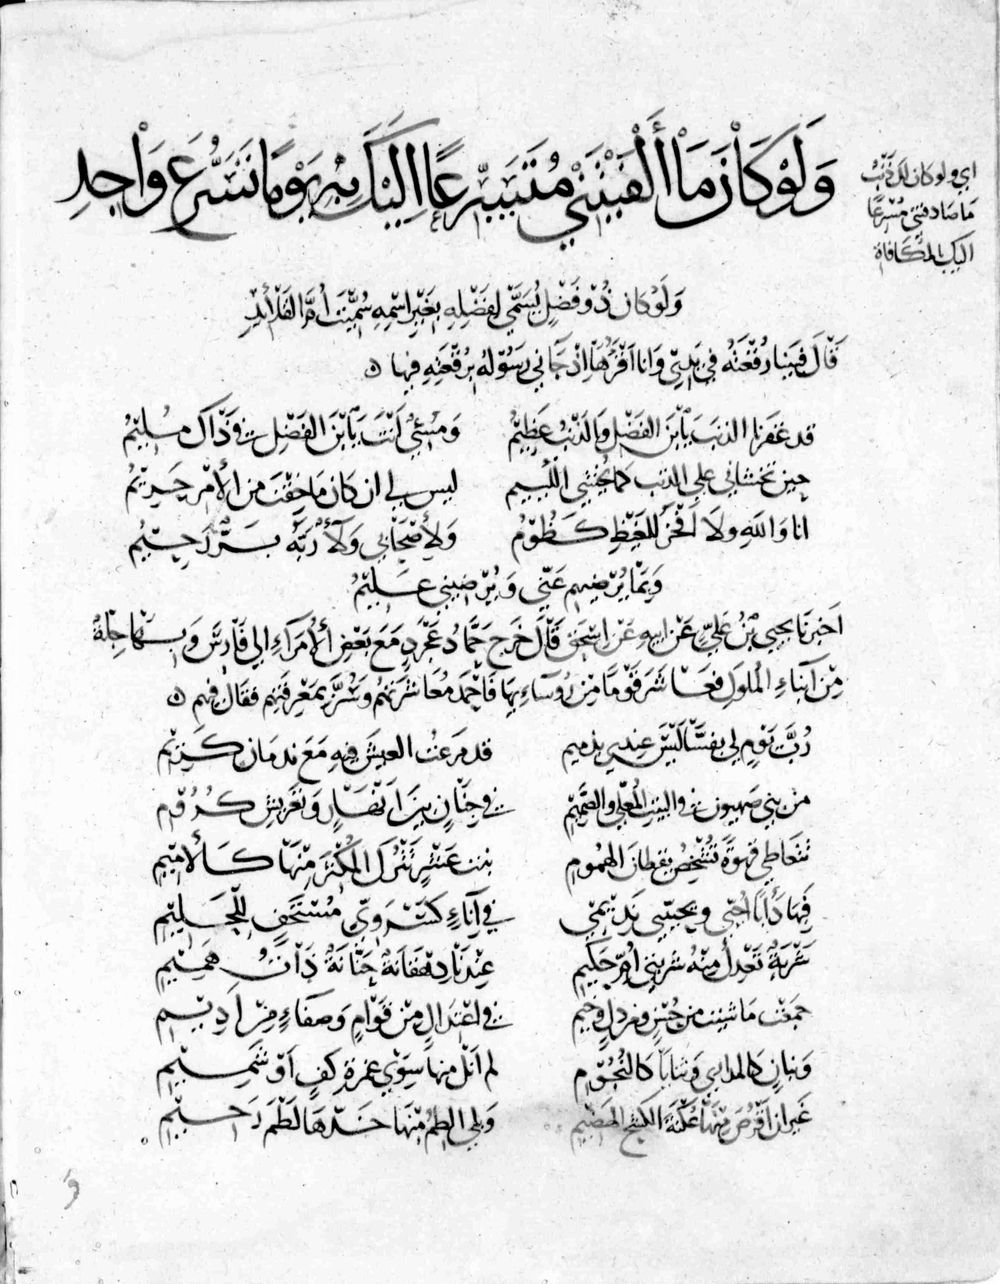 وَلَوْ كَانَ مَا أَلْفَيْتَنِي مُتَسَرِّعًا إِلَيْكَ بِهِ يَوْمًا تَسَرُّعَ وَاجِدِ
اي ولو كان لك ذنب
ما صادفتني مسرعا
اليك المكافاة
وَلَوْ كَانَ ذُو فَضْلٍ يُسَمَّى لِفَضْلِهِ بِغَيْرِ اسْمِهِ سُمِّيتَ أُمَّ القَلَائِدِ
قَالَ فبينا رُقْعَتُه في يَدَيّ وانا أقرؤها إذ جاءني رسوله برقعته فيها ه
قد غفرنا الذنب يا بن الفضل والذنب عظيم ومسيء أنت يا بن الفضل في ذاك مليم
حين تخشاني على الذنب كما يخشى اللئيم ليس لي ان كان ما خفت من الأمر حريم
انا والله ولا أفخر للغيظ كظوم ولأصحابي ولاء ربه بر رحيم
وبما يرضيهم عني ويرضيني عليم
اخبرنا يحيى بن علي عن ابيه عن اسحق قال خرج حماد عجرد مع بعض الأمراء الى فارس وبها جلة
من أبناء الملوك فعاشر قوما من رؤساء بها فأحمد معاشرتهم وسر بمعرفتهم فقال فيهم ه
رب يوم لي بفسا ليس عندي بذميم قد قرعت العيش فيه مع ندمان كريم
من بني صهيون في البيت المعلى والصميم في جنان بين أنهار وتعريش كروم
نتعاطى قهوة تشخص يقظان الهموم بنت عشر تترك المكثر منها كالأميم
فيها دأبا أحيي ويحييني نديمي في إناء كسروي مستخف للحليم
شربة تعدل منه شربتي أم حكيم عندنا دهقانة حنانة ذات هميم
جمعت ما شئت من حسن ومن دل رخيم في اعتدال من قوام وصفاء من أديم
وبنان كالمداري وثنايا كالنجوم لم أنل منها سوى غمزة كف أو شميم
غير ان أقرص منها عكنة الكشح الهضيم وبلى الطم منها خدها لطم رحيم